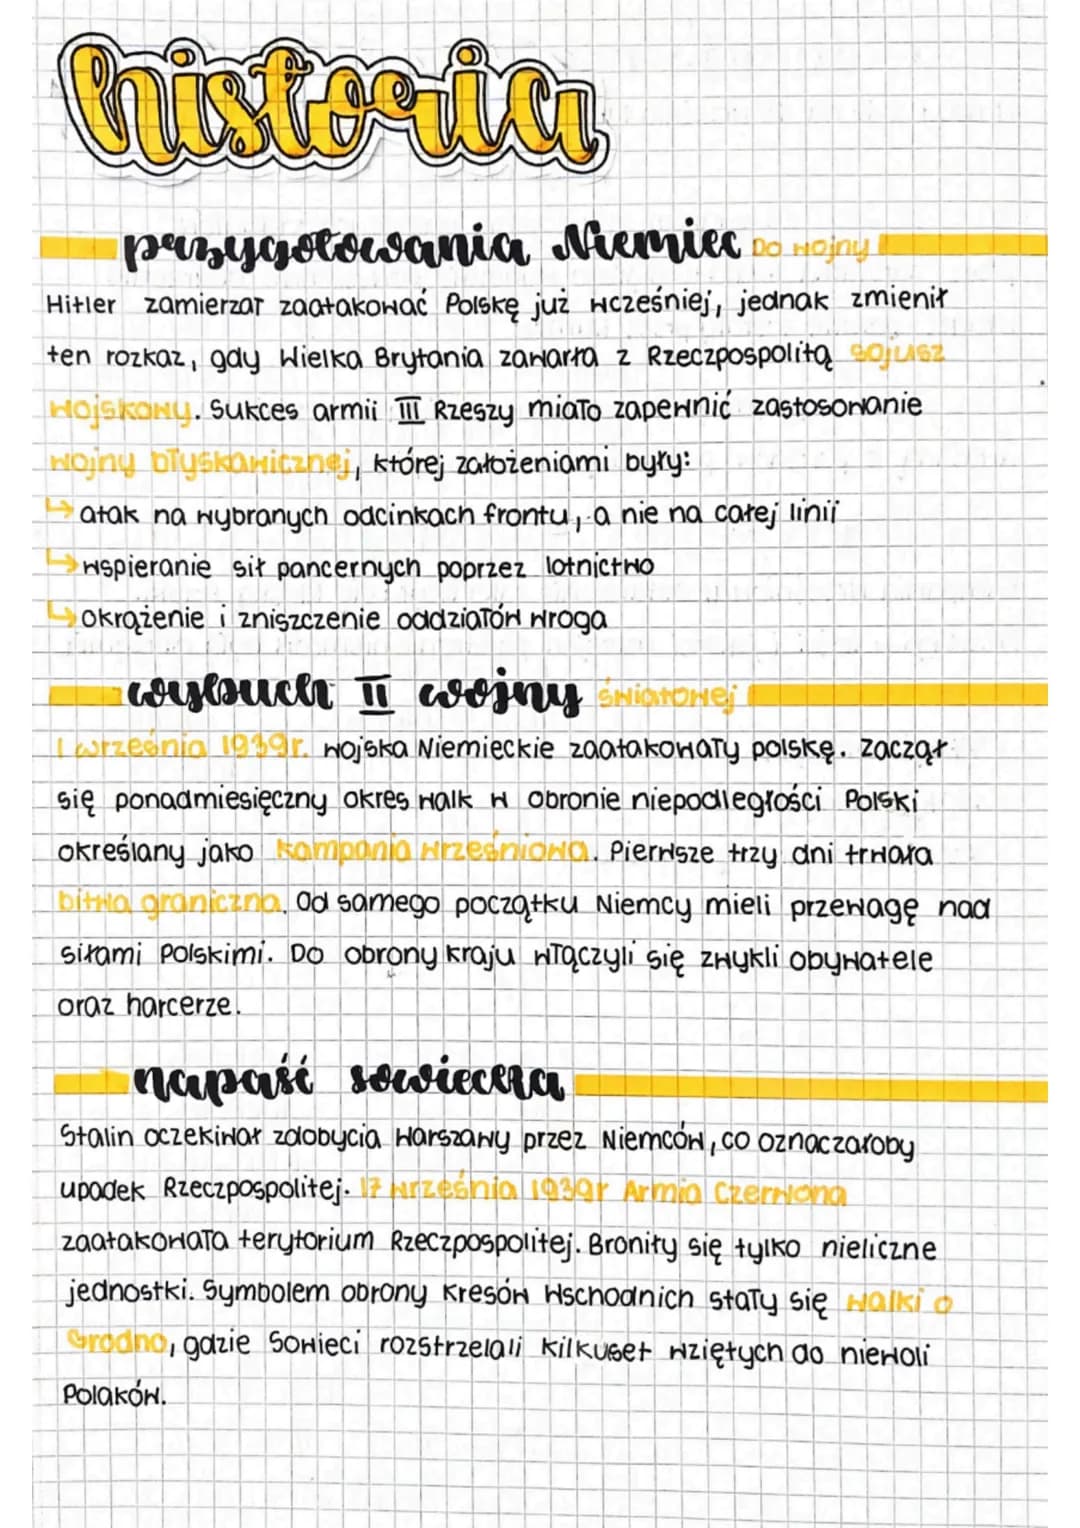 historia
przygotowania Niemiec Do wojny
Hitler zamierzał zaatakować Polskę już wcześniej, jednak zmienił
ten rozkaz, gdy Wielka Brytania zawarła z Rzeczpospolitą sojusz
wojskowy. Sukces armii III Rzeszy miało zapewnić zastosowanie
wojny błyskawicznej, której założeniami były:
↳ atak na wybranych odcinkach frontu, a nie na całej linii
↳ wspieranie sił pancernych poprzez lotnictwo
↳ okrążenie i zniszczenie oddziałów wroga
wybuch II wojny światowej
1 września 1939r. wojska Niemieckie zaatakowały polskę. Zaczął
się ponadmiesięczny okres walk w obronie niepodległości Polski
określany jako kampania wrześniowa. Pierwsze trzy dni trwała
bitwa graniczna. Od samego początku Niemcy mieli przewagę nad
siłami Polskimi. Do obrony kraju włączyli się zwykli obywatele
oraz harcerze.
napaść sowiecka
Stalin oczekiwał zdobycia Warszawy przez Niemców, co oznaczałoby
upadek Rzeczpospolitej. 17 września 1939r Armia Czerwona
zaatakowała terytorium Rzeczpospolitej. Broniły się tylko nieliczne
jednostki. Symbolem obrony Kresów Wschodnich stały się walki o
Grodno, gdzie Sowieci rozstrzelali kilkuset wziętych do niewoli
Polaków.